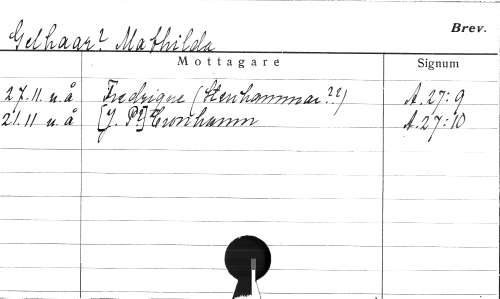 Brev.
Gelhaar? Mathilda
Mottagare Signum
27.11. u. å Fredrique (Stenhammar??) A. 27:9
21.11 u. å [J. P?] Cronhamn A. 27:10